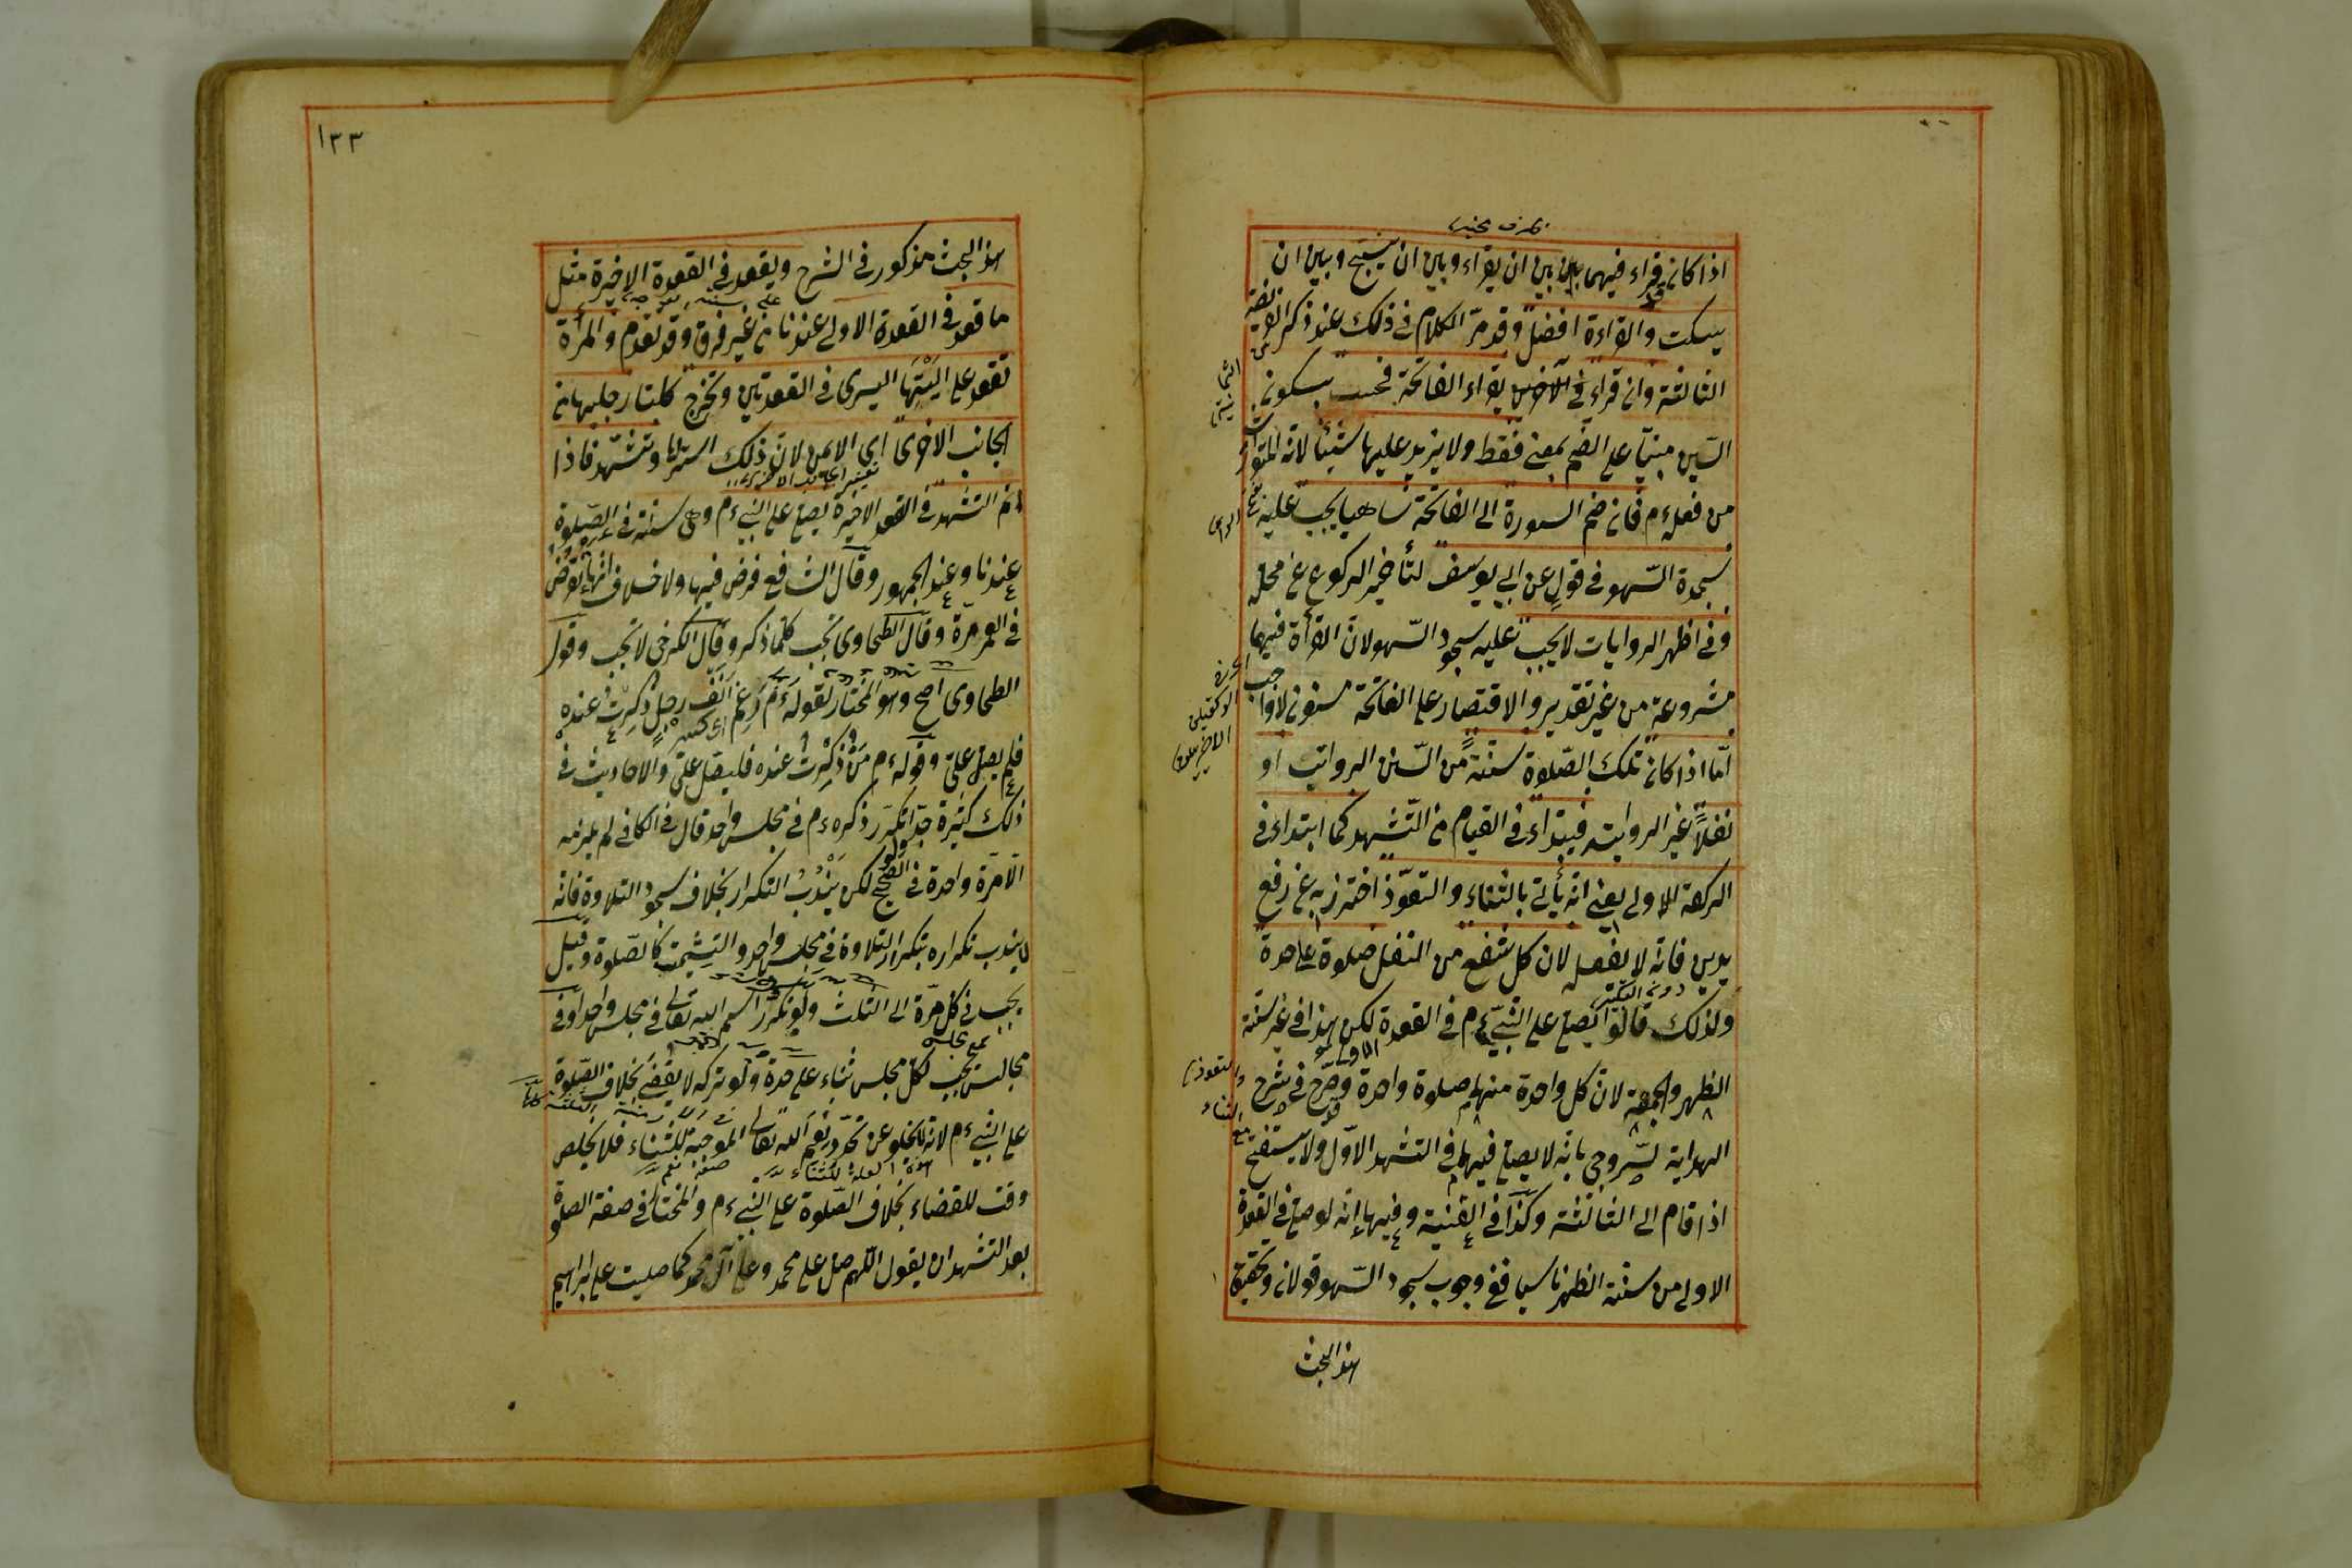 اذا كان يقراء فيهما بين ان يقراء وبين ان يسبح وبين ان
يسكت والقراءة افضل وقد مرّ الكلام في ذلك عند ذكر
الثالثة وان قراء في الاخريين يقراء الفاتحة فحسب بسكون
السّين مبنيّا على الضم بمعنى فقط ولا يزيد عليها شيئا لانه المتوارث
من فعله ءم فان ضم السورة الى الفاتحة ساهيا يجب عليه
سجدة السّهو في قول عن ابي يوسف لتأخير الركوع عن محله
وفي اظهر الروايات لا يجب عليه سجود السّهو لانّ القرأة فيهما
مشروعة من غير تقدير والاقتصار على الفاتحة مسنون لا واجب
امّا اذا كان تلك الصّلوة سنّةً من السّنن الرواتب او
نفلاً غير الرواتب فيبتداء في القيام من التّشهد كما ابتداء في
الركعة الاولى يعني انّه يأتي بالثناء والتعوّذ احترز به عن رفع
يدين فانّه لا يفعل لان كل شفع من النفل صلوة على حدة
دون التكبير
ولذلك قالوا يصلي على النّبي ءم في القعدة لكن هذا في غير سنّة
الظهر والجمعة لانّ كل واحدة منهما صلوة واحدة وصرّح في شرح
الهداية للسّروجي بانّه لا يصلي فيهما في التشهد الاوّل ولا يستفتح
اذا قام الى الثالثة وكذا في القنية وفيها انه لو صلى في القعدة
الاولى من سنّة الظهر ناسيا ففي وجوب سجود السّهو قولان وتحقيق
هذا البحث
١٣٣
هذا البحث مذكور في الشرح ويقعد في القعدة الاخيرة مثل
ما قعد في القعدة الاولى عندنا من غير فرق وقد تقدم والمرأة
تقعد على اليَتْها اليسرى في القعدتين وتخرج كلتا رجليها من
الجانب الاخرى اي الايمن لانّ ذلك استر لها وتتشهد فاذا
اتم التشهد في القعدة الاخيرة يصلي على النبي ءم وهي سنّة في الصّلوة
عندنا وعند الجمهور وقال الشافعي فرض فيها ولا خلاف انها تفرض
في العمر مرّة وقال الطحاوي تجب كلّما ذكر وقال الكرخي لا تجب وقول
الطحاوي اصح وهو المختار لقوله ءم رَغِمَ اَنْفُ رجلٍ ذُكِرْتُ عنده
فلم يصل عليّ وقوله ءم مَنْ ذُكِرْتُ عنده فليصل عليّ والاحاديث في
ذلك كثيرة جدّا ولو تكرّر ذكره ءم في مجلس واحد قال في الكافي لم يلزمه
الّا مرّة واحدة في الصّحيح لكن يُنْدَبُ التكرار بخلاف سجود التلاوة فانّه
لا يندب تكراره بتكرار التلاوة في مجلس واحد والتشميت كالصّلوة وقيل
يجب في كل مرّة الى الثلث ولو تكرّر اسم الله تعالى في مجلس واحد او في
مجالس يجب لكل مجلس ثناء على حدة ولو تركه لا يقضي بخلاف الصّلوة
على النبي ءم لانه لا يخلو عن تجدّد نِعَم الله تعالى الموجبة للثّناء فلا يخلص
وقت للقضاء بخلاف الصّلوة على النبي ءم والمختار في صفة الصلوة
بعد التشهد ان يقول اللّهم صل على محمد وعلى آل محمد كما صليت على ابراهيم